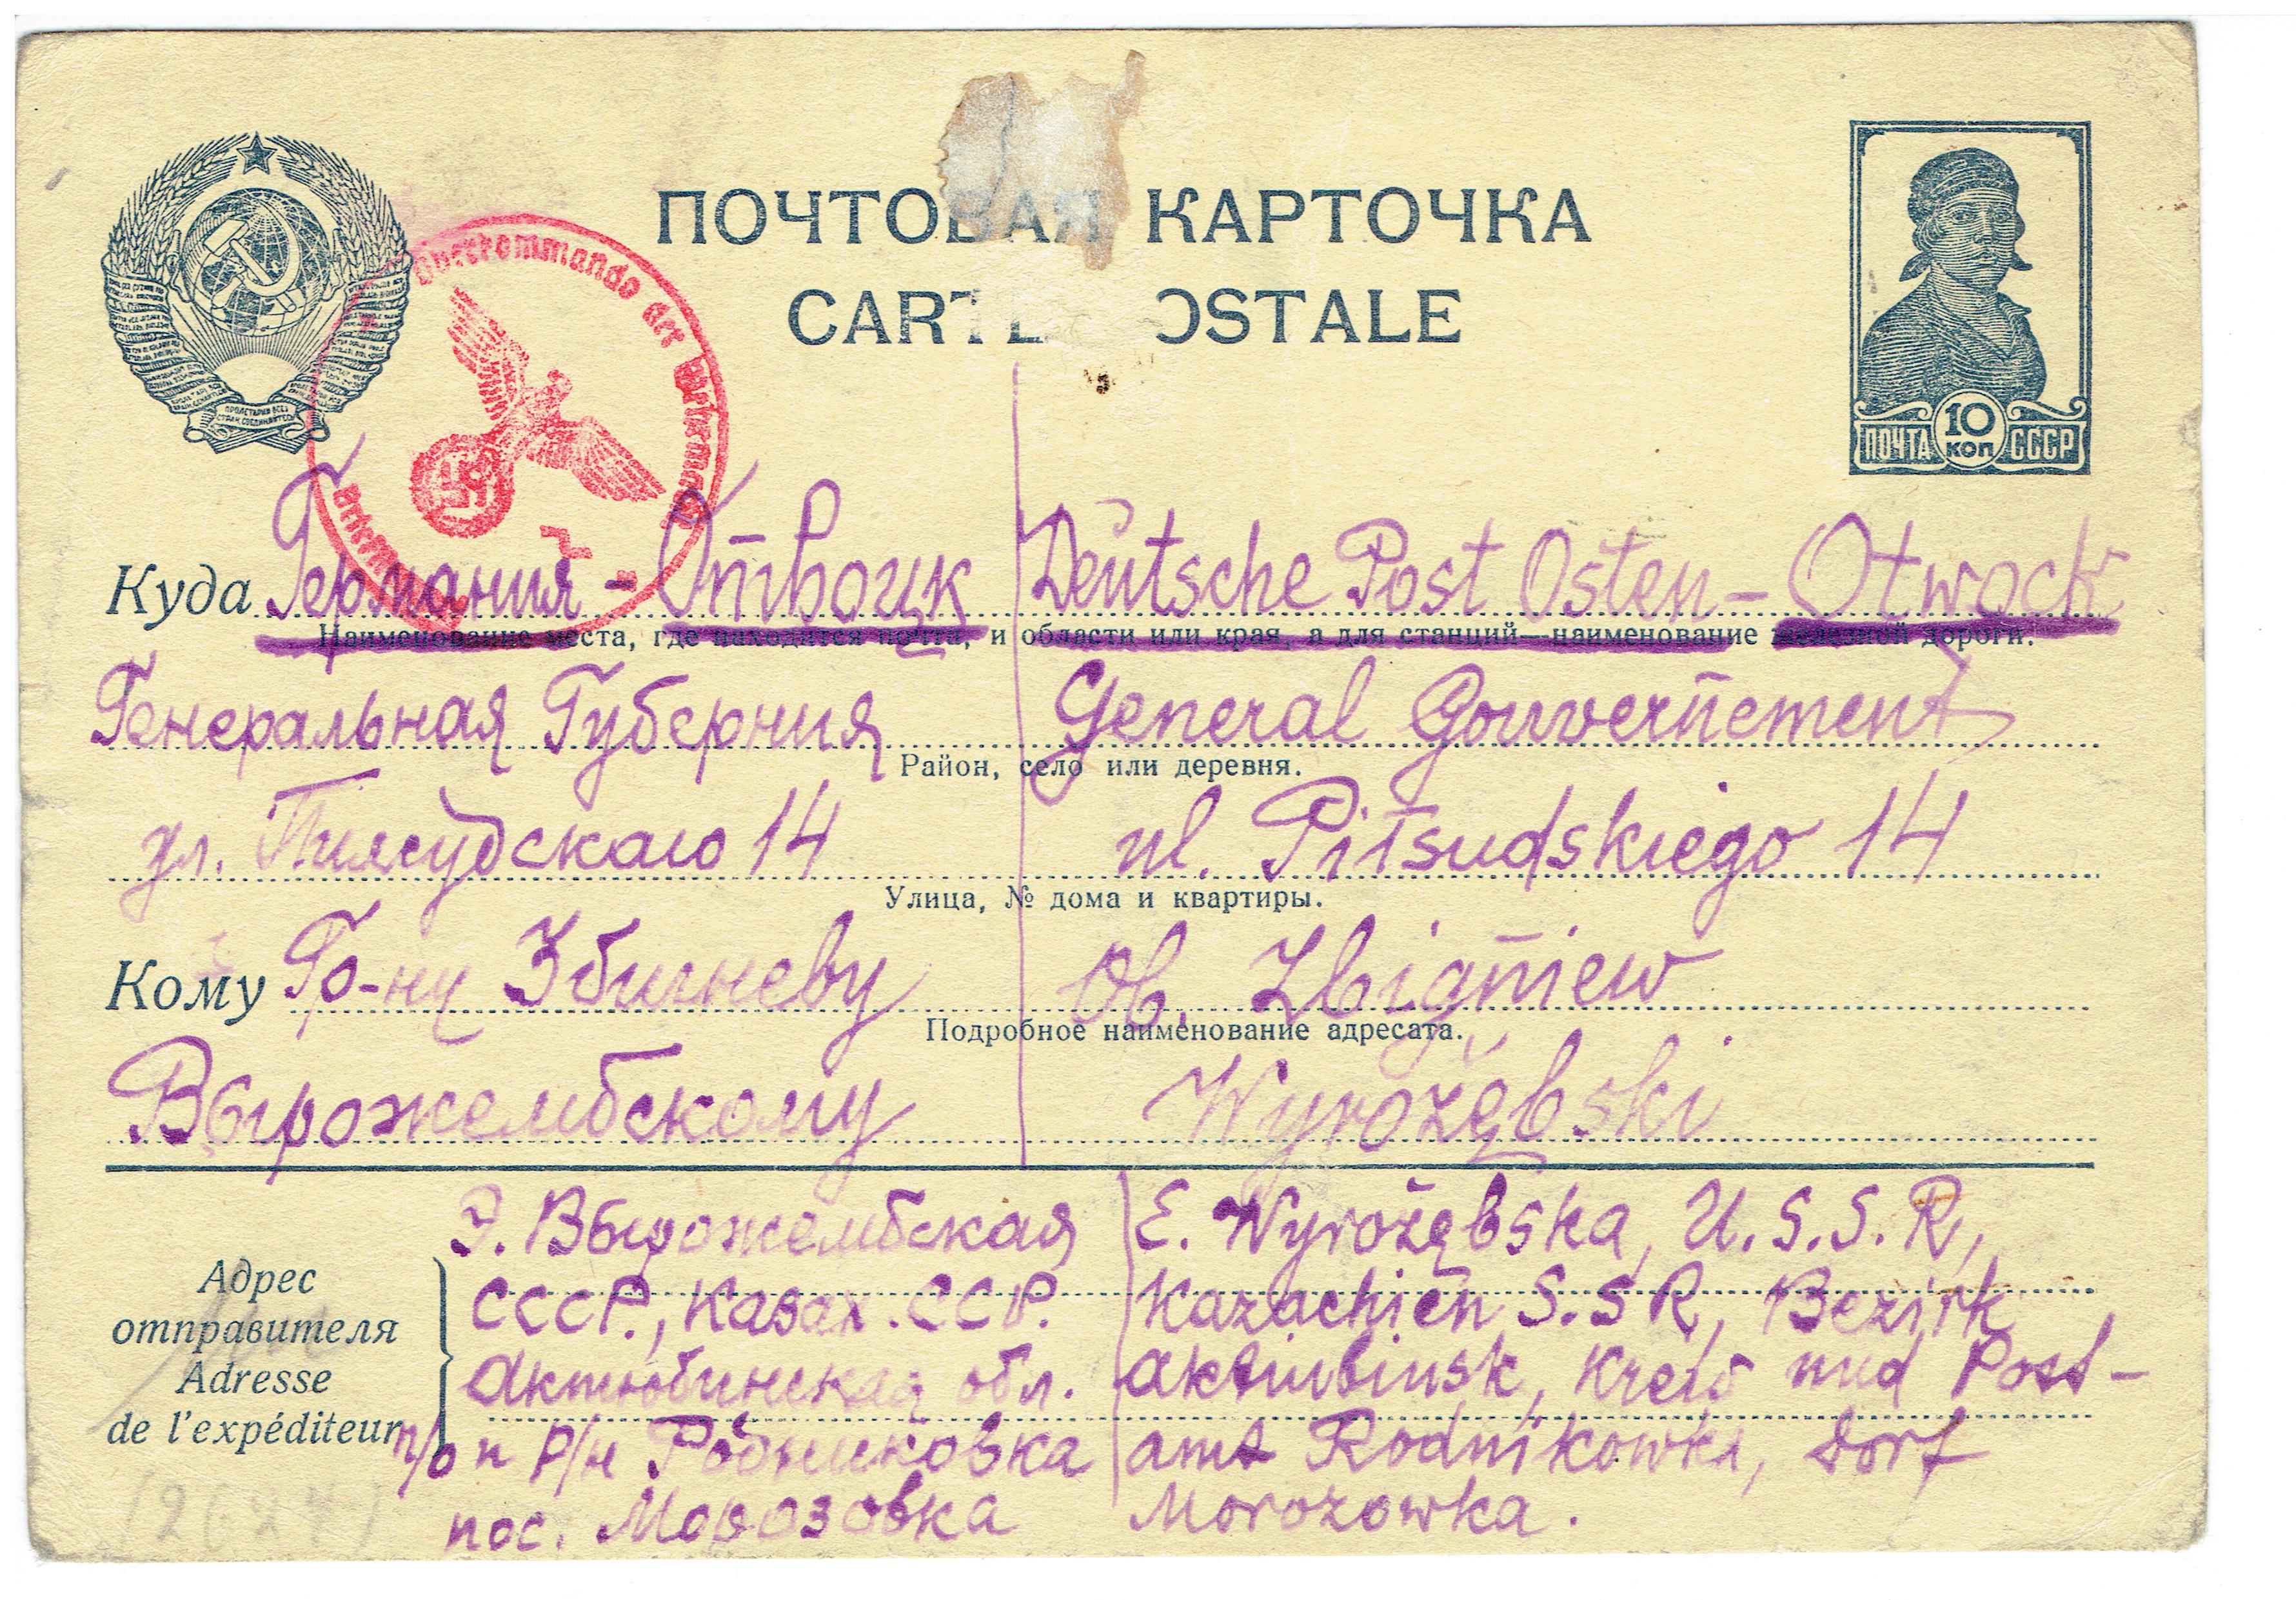 ПОЧТОВАЯ КАРТОЧКА
CARTE POSTALE
ПРОЛЕТАРИИ ВСЕХ
СТРАН, СОЕДИНЯЙТЕСЬ!
Oberkommando der Wehrmacht
10
ПОЧТА КОП СССР
Куда Германия - Отвоцк Deutsche Post Osten - Otwock
Наименование места, где находится почта, и области или края, а для станций—наименование железной дороги.
Генеральная Губерния General Gouvernement
Район, село или деревня.
ул. Пилсудскаго 14 ul. Piłsudskiego 14
Улица, № дома и квартиры.
Кому Гр-ну Збигневу Ob. Zbigniew
Подробное наименование адресата.
Вырожембскому Wyrożębski
Э. Вырожембская E. Wyrożębska, U.S.S.R,
Адрес СССР., Казах. ССР. Kazachien S.S R, Bezirk
отправителя
Adresse Актюбинская обл. Aktiubinsk, Kreis und Post-
de l'expéditeur п/о и р/н Родниковка amt Rodnikowka, Dorf
пос. Морозовка Morozowka.